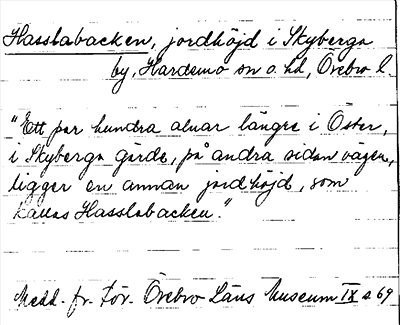 Hasslabacken, jordhöjd i Skyberga
by, Hardemo sn o. hd, Örebro l.
"Ett par hundra alnar längre i Öster,
i Skyberga gärde, på andra sidan vägen,
ligger en annan jordhöjd, som
kallas Hasslabacken."
Medd. fr. För. Örebro Läns Museum IX s. 69